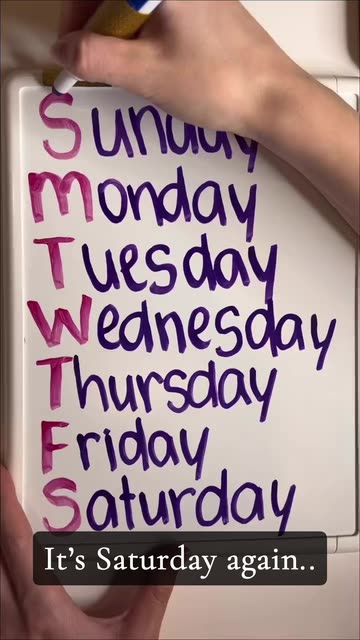 Sunday
Monday
Tuesday
Wednesday
Thursday
Friday
Saturday
It's Saturday again..